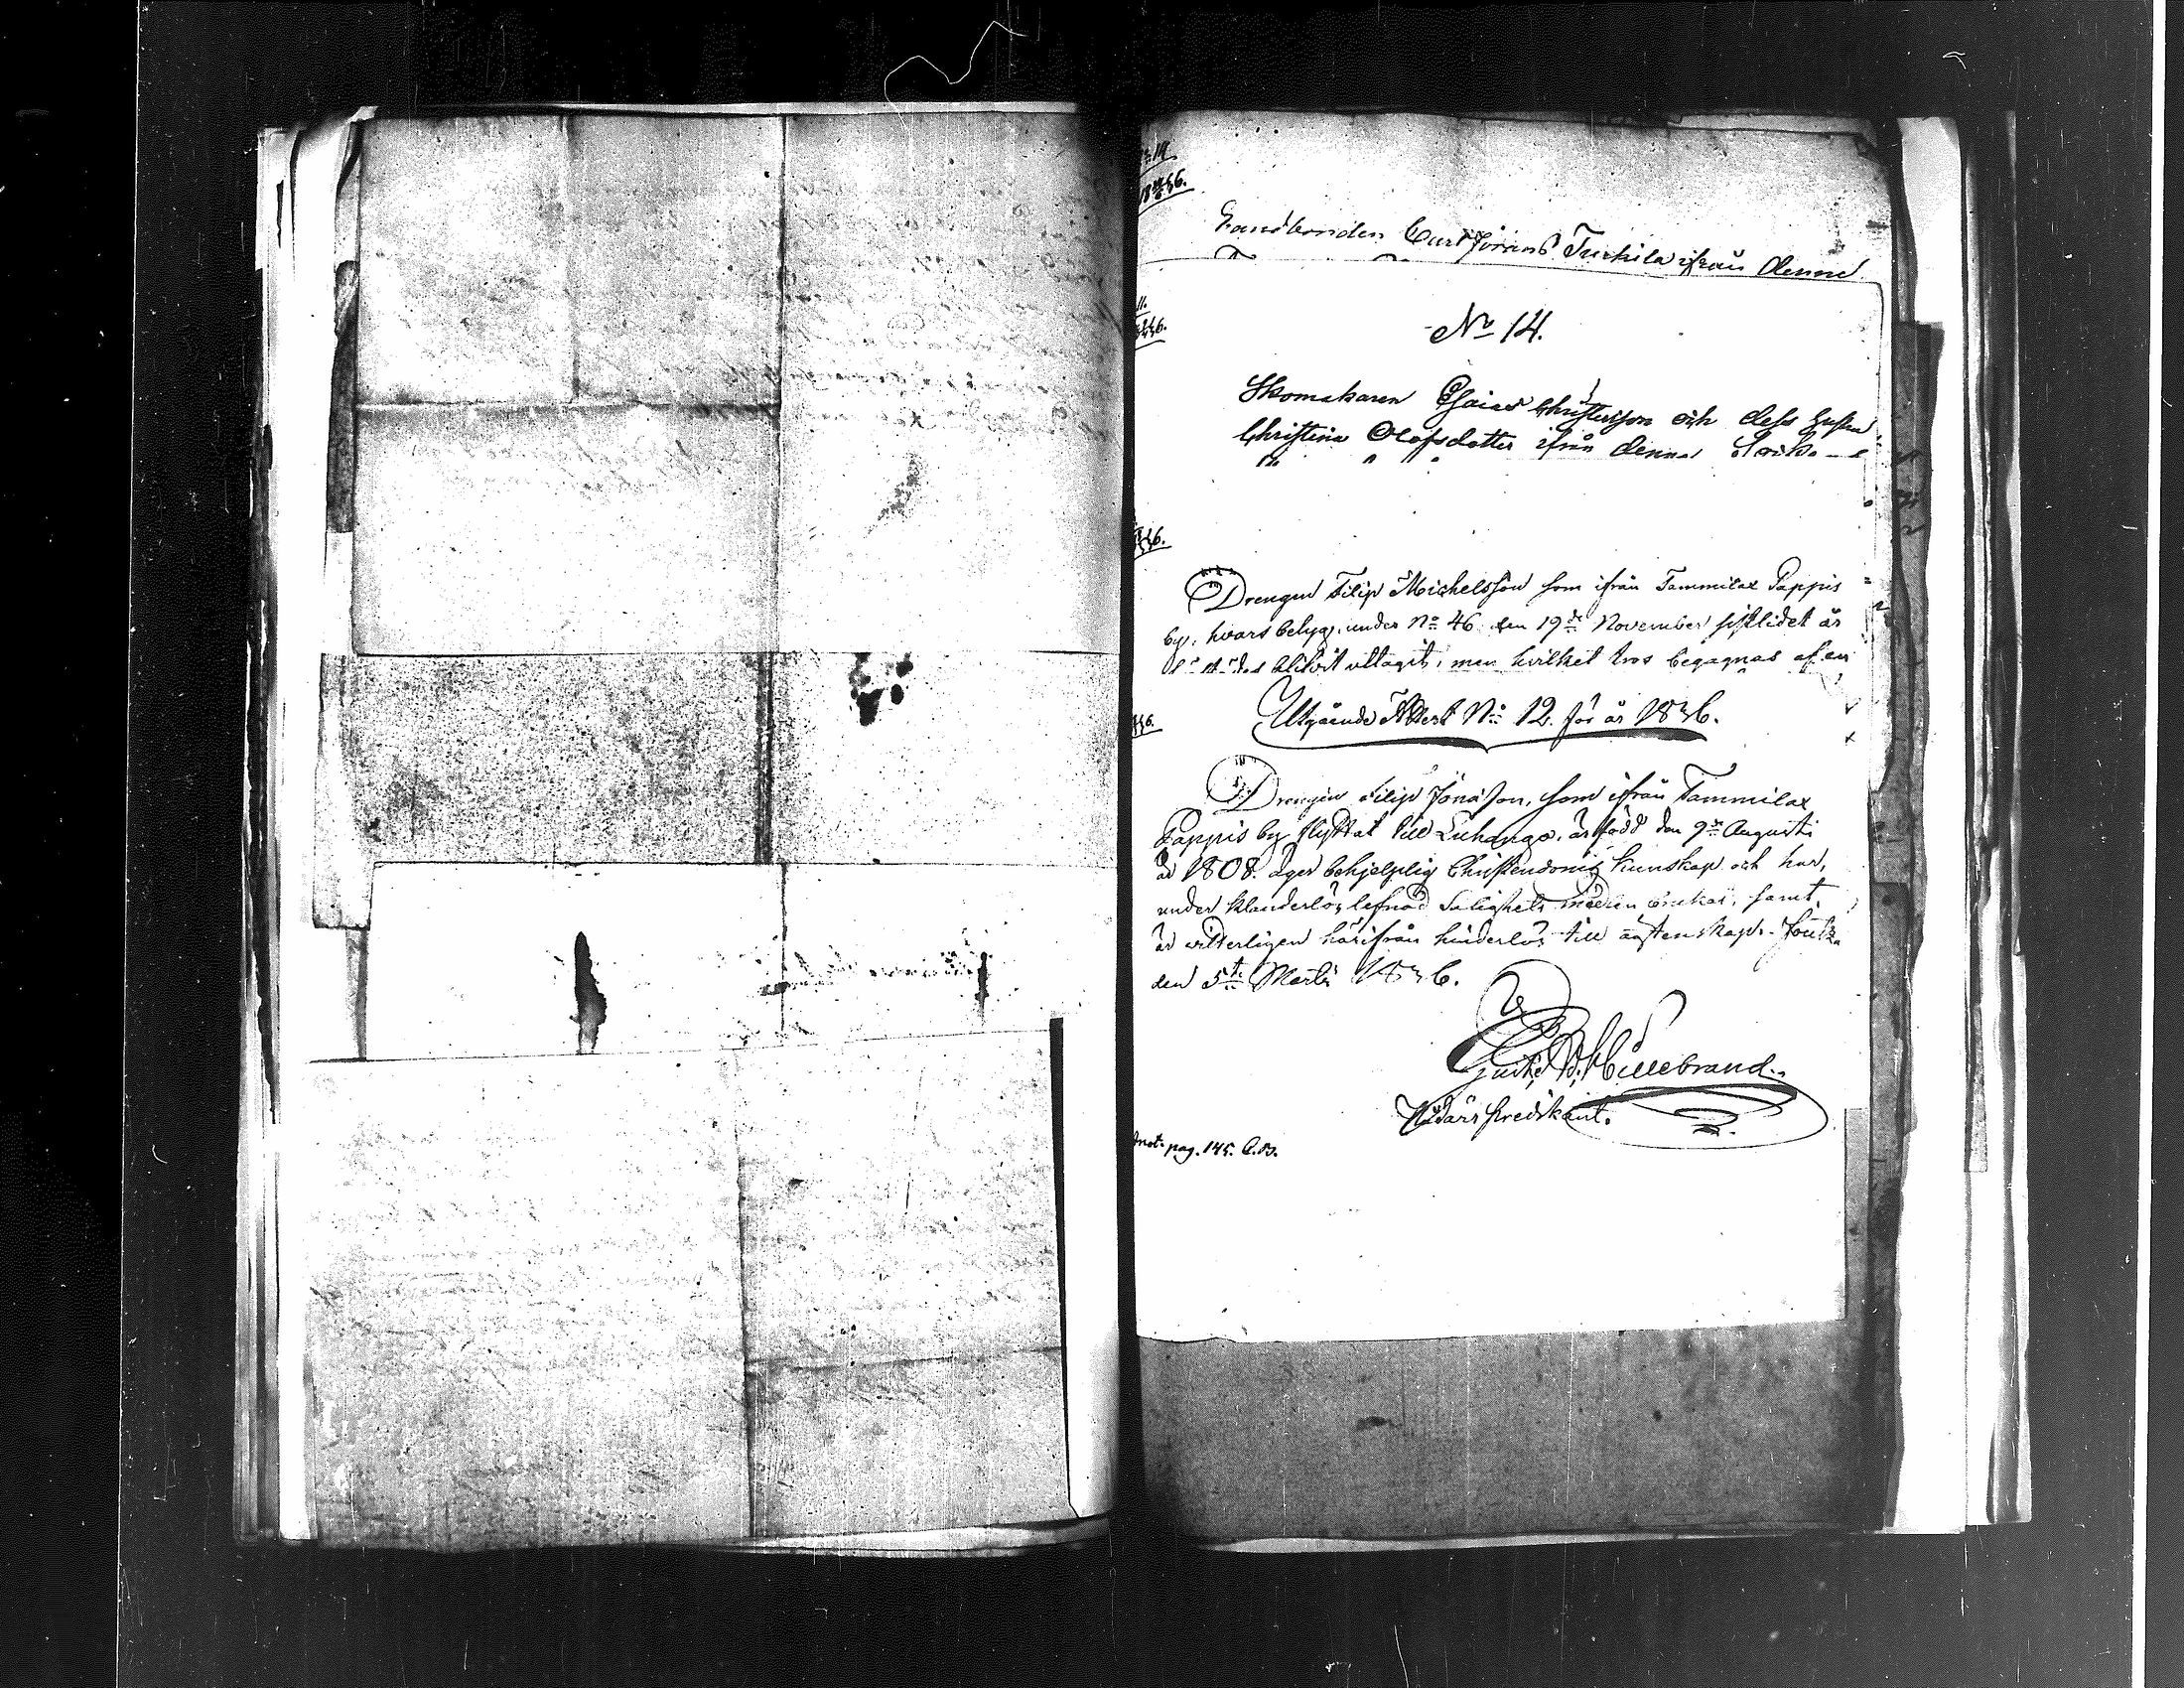 Landbonden Carl Jörans Turkila ifrån denne
No 14.
Skomakaren Esaias Christersson och dess hustru
Christina Olofsdotter ifrån denna
Drengen Filip Michelsson som ifrån Tammilax Pappis
by, hvars betyg under No 46 den 19de November sistlidet år
blifvit uttagit, men hvilket tros begagnas af en
Utgående Attest No 12. för år 1836.
Drengen Filip Jonasson, som ifrån Tammilax
Pappis by flyttat till Luhango, är född den 9de Augusti
år 1808. äger behjelplig Christendoms kunskap och har,
under klanderlös lefnad Salighets medlen brukat, samt
är witterligen härifrån hinderlös till ägtenskap. Joutza
den 5te Martii 1836.
Gust. Ad. Hillebrand.
Nådårs predikant.
pag. 145.